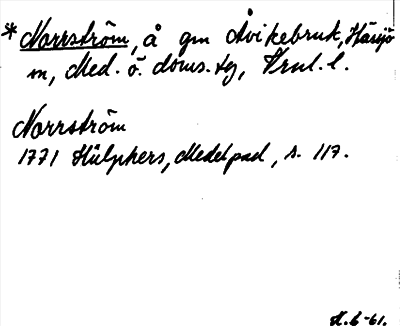 * Norrström, å gm Åvikebruk, Hässjö
m, Med. ö. doms. tg, Vrnl. l.
Norrström
1771 Hülphers, Medelpad, s. 117.
H. 6-61.